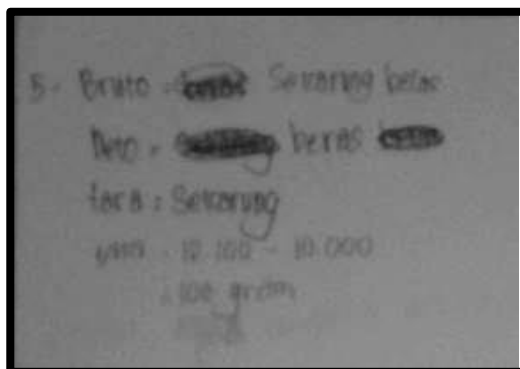 5. Bruto = Sekarung beras
Neto = beras
tara = Sekarung
= 10.100 - 10.000
= 100 gram